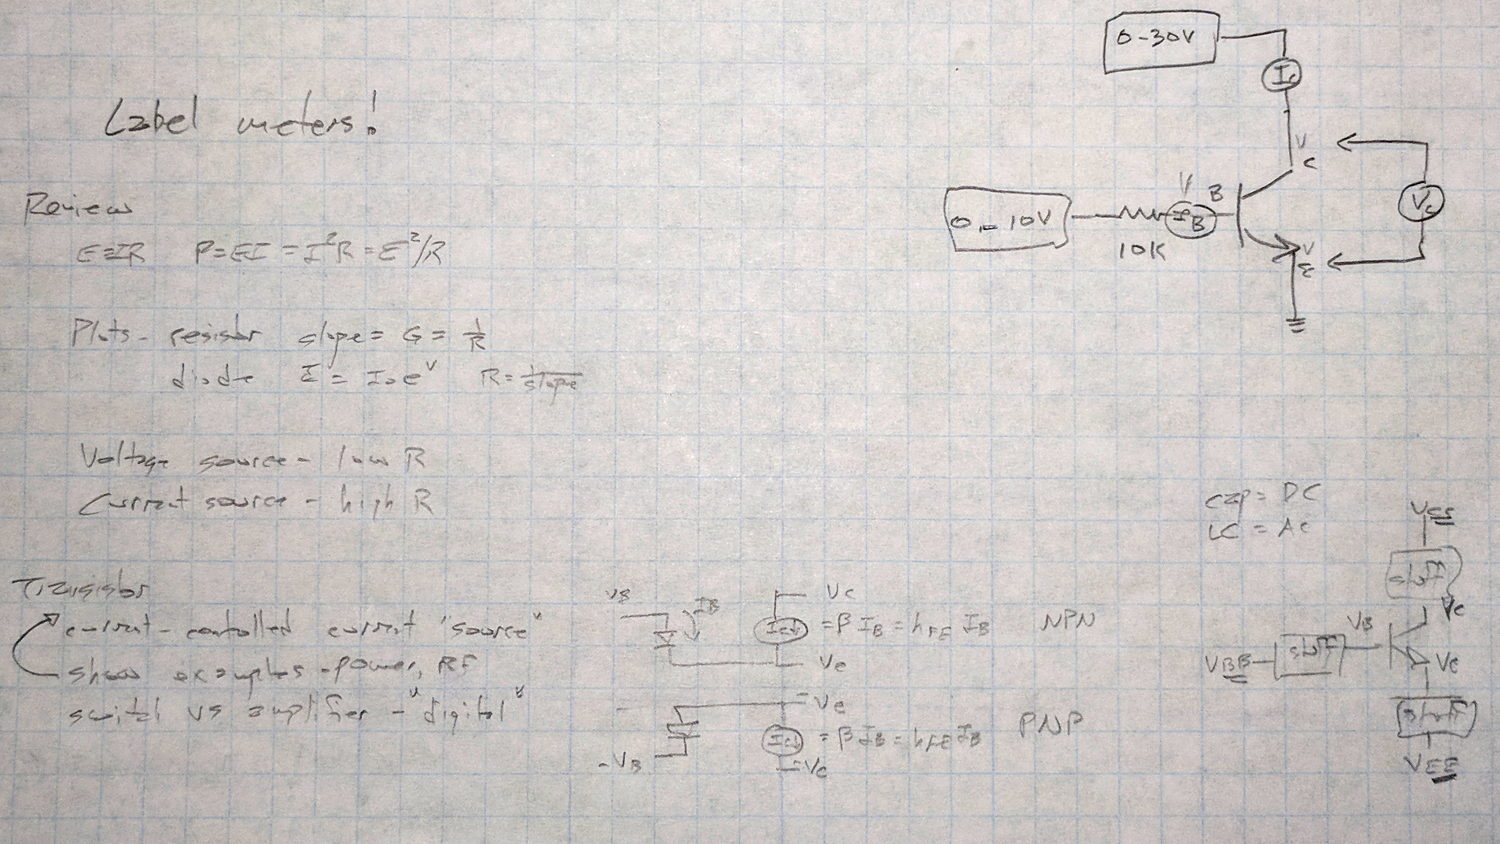 Label meters!
Review
E=IR P=EI=I²R=E²/R
Plots- resistor slope = G = 1/R
diode I = I₀e^V R=1/slope
Voltage source - low R
Current source - high R
Transistor
current-controlled current "source"
show examples - power, RF
switch vs amplifier - "digital"
0-30V
Ic
V
C
0-10V
10K
V
IB
B
V
E
Vc
VB
IB
Vc
= β IB = hFE IB NPN
Ve
Ve
= β IB = hFE IB PNP
-VB
-Vc
cap = DC
LC = AC
stuff
Vc
VB
VBB
stuff
Ve
stuff
VEE